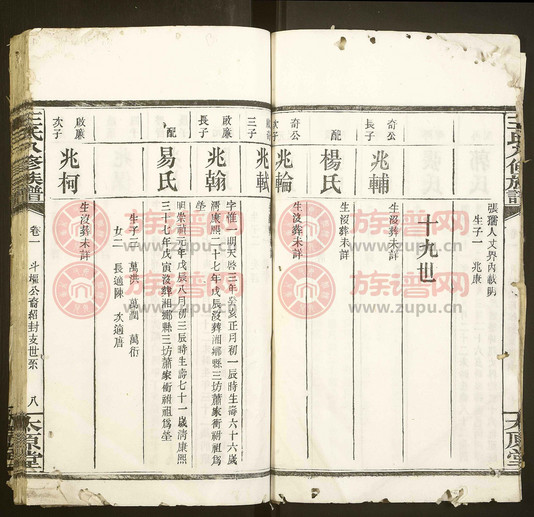 張孺人文界內載明
生子一 兆康
十九世
奇公
長子
兆輔
生沒葬未詳
配
楊氏
生沒葬未詳
奇公
次子
兆輪
生沒葬未詳
三子
兆軾
啟廉
長子
兆翰
字惟一明天啓三年癸亥正月初一辰時生壽六十六歲
清康熙二十七年戊辰沒葬湘鄉縣三坊蕭家衝祔祖爲
塋
配
易氏
明崇禎元年戊辰八月初三辰時生壽七十一歲清康熙
三十七年戊寅沒葬湘鄉縣三坊蕭家衝祔祖爲塋
生子三 萬洪 萬潤 萬衍
女二 長適陳 次適唐
啟廉
次子
兆柯
生沒葬未詳
王氏八修族譜
卷一
八
太原堂
族譜网
www.zupu.cn
族譜网
www.zupu.cn